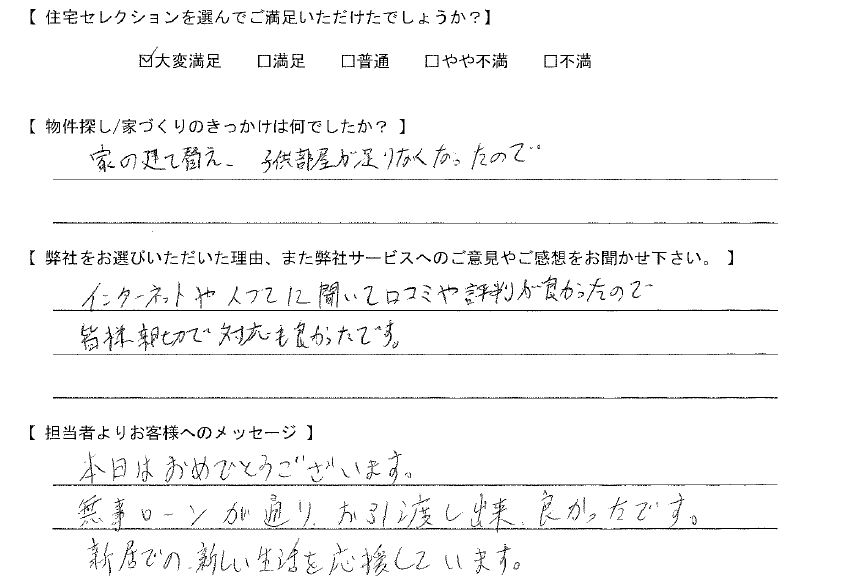 【 住宅セレクションを選んでご満足いただけたでしょうか？】
☑大変満足 □満足 □普通 □やや不満 □不満
【 物件探し/家づくりのきっかけは何でしたか？ 】
家の建て替え、子供部屋が足りなくなったので
【 弊社をお選びいただいた理由、また弊社サービスへのご意見やご感想をお聞かせ下さい。 】
インターネットや人づてに聞いて口コミや評判が良かったので
皆様親切で対応も良かったです。
【 担当者よりお客様へのメッセージ 】
本日はおめでとうございます。
無事ローンが通り、お引渡し出来、良かったです。
新居での新しい生活を応援しています。